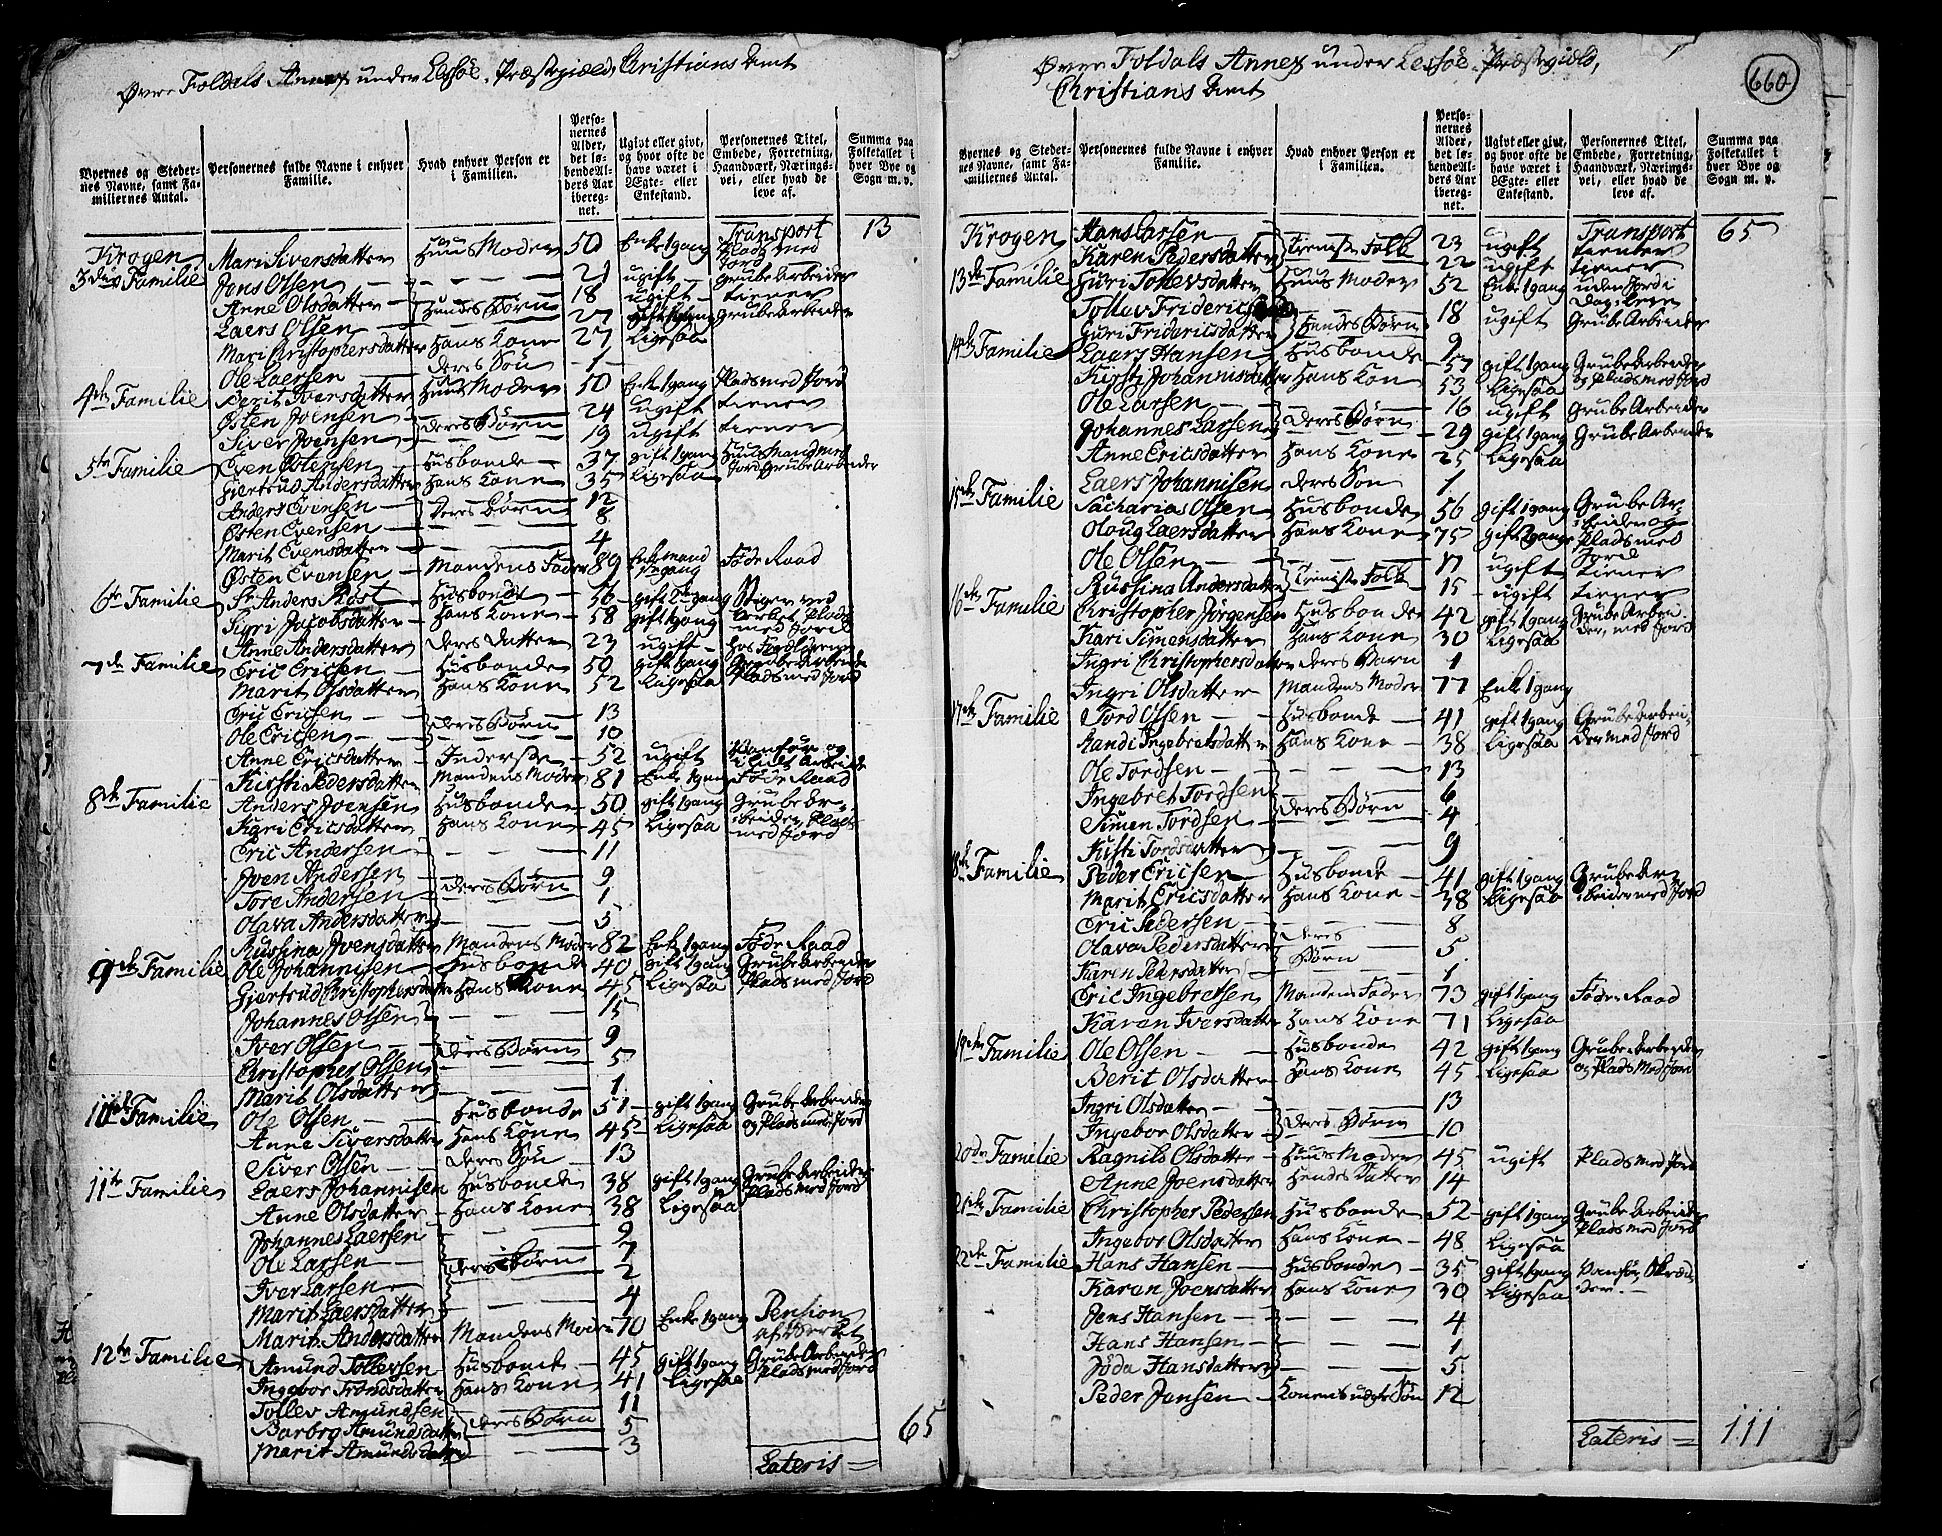 Øvre Foldals Annex under Lessøe Præstegields Christians Amt
Byernes og Stedernes Navne, samt Familiernes Antal.
Personernes fulde Navne i enhver Familie.
Hvad enhver Person er i Familien.
Personernes Alder, det løbende Alders Aar iberegnet.
Ugivt eller givt, og hvor ofte de have været i Ægte- eller Enkestand.
Personernes Titel, Embede, Forretning, Haandværk, Næringsvei, eller hvad de leve af.
Summa paa Folketallet i hver Bye og Sogn m. v.
Transport 13
Krogen
3die Familie Mari Siversdatter Huus Moder 50 Enke 1 gang Plads med Jord
Jons Olsen 21 ugift Grube Arbeider
Anne Olsdatter Hendes Børn 18 ugift tiener
Laers Olsen 27 gift 1 gang Grube Arbeider
Mari Christophersdatter Hans Kone 27 Ligesaa
Ole Laersen deres Søn 1
4de Familie Berit Iversdatter Huus Moder 50 Enke 1 gang Plads med Jord
Østen Joensen deres Børn 24 ugift tiener
Siver Joensen 19 ugift tiener
5te Familie Even Østensen Husbonde 37 gift 1 gang Huusmand med Jord Grube Arbeider
Giertrud Andersdatter Hans Kone 35 Ligesaa
Anders Evensen Deres Børn 12
Østen Evensen 8
Marit Evensdatter 4
Østen Evensen Mandens Fader 89 Enkemand 1 gang Føde Raad
6te Familie Sr Anders Rost Husbonde 56 gift 2 gang Stiger ved Verket, Plads med Jord
Sigri Jacobsdatter Hans Kone 58 gift 1 gang
Anne Andersdatter deres Datter 23 ugift hos Forældrene
7de Familie Eric Ericsen Husbonde 50 gift 1 gang Grube Arbeider Plads med Jord
Marit Olsdatter Hans Kone 52 Ligesaa
Eric Ericsen deres Børn 13
Ole Ericsen 10
Anne Ericsdatter Inderste 52 ugift Vanfør og
Kirsti Pedersdatter Mandens Moder 81 Enke 1 gang Føde Raad
8de Familie Anders Joensen Husbonde 50 gift 1 gang Grube Arbeider, Plads med Jord
Kari Ericsdatter Hans Kone 45 Ligesaa
Eric Andersen 11
Joen Andersen deres Børn 9
Tore Andersen 1
Olava Andersdatter 5
Russina Joensdatter Mandens Moder 82 Enke 1 gang Føde Raad
9de Familie Ole Johannisen Husbonde 40 gift 1 gang Grube Arbeider Plads med Jord
Giertrud Christophersdatter Hans Kone 45 Ligesaa
Johannes Olsen 15
Iver Olsen deres Børn 9
Christopher Olsen 5
Marit Olsdatter 1
10de Familie Ole Olsen Husbonde 51 gift 1 gang Grube Arbeider og Plads med Jord
Anne Siversdatter Hans Kone 45 Ligesaa
Siver Olsen deres Søn 13
11te Familie Laers Johannisen Husbonde 38 gift 1 gang Grube Arbeider Plads med Jord
Anne Olsdatter Hans Kone 38 Ligesaa
Johannes Laersen 9
Ole Larsen deres Børn 7
Iver Larsen 2
Marit Laersdatter 4
Marit Andersdatter Mandens Moder 70 Enke 1 gang Pension af Verket
12te Familie Amund Tollefsen Husbonde 45 gift 1 gang Grube Arbeider Plads med Jord
Ingebor Trondsdatter Hans Kone 41 Ligesaa
Tollev Amundsen 11
Barbro Amundsdatter deres Børn 5
Marit Amundsdatter 3
Lateris = 65
660
Øvre Foldals Annex under Lessøe Præstegield,
Christians Amt
Byernes og Stedernes Navne, samt Familiernes Antal.
Personernes fulde Navne i enhver Familie.
Hvad enhver Person er i Familien.
Personernes Alder, det løbende Alders Aar iberegnet.
Ugivt eller givt, og hvor ofte de have været i Ægte- eller Enkestand.
Personernes Titel, Embede, Forretning, Haandværk, Næringsvei, eller hvad de leve af.
Summa paa Folketallet i hver Bye og Sogn m. v.
Transport 65
Krogen Hans Larsen Tieniste Folk 23 ugift tiener
Karen Pedersdatter 22 ugift tiener
13de Familie Guri Tollevsdatter Huus Moder 52 Enke 1 gang uden Jord
Tollev Friderichsen Hendes Børn 18 ugift Grube Arbeider
Guri Fridericsdatter 9
14de Familie Laars Hansen Husbonde 57 gift 1 gang Grube Arbeider og Plads med Jord
Kirsti Johannisdatter Hans Kone 53 Ligesaa
Ole Larsen deres Børn 16 ugift Grube Arbeider
Johannes Larsen 29 gift 1 gang Grube Arbeider
Anne Ericsdatter Hans Kone 25 Ligesaa
Laers Johannisen deres Søn 1
15de Familie Sacharias Olsen Husbonde 56 gift 1 gang Grube Arbeider og Plads med Jord
Oloug Laersdatter Hans Kone 75 gift 2 gange
Ole Olsen Tieniste Folk 17 ugift tiener
Russina Andersdatter 15 ugift tiener
16de Familie Christopher Jørgensen Husbonde 42 gift 1 gang Grube Arbeider, med Jord
Kari Simensdatter Hans Kone 30 Ligesaa
Ingri Christophersdatter deres Barn 1
Ingri Olsdatter Mandens Moder 77 Enke 1 gang
17de Familie Tord Olsen Husbonde 41 gift 1 gang Grube Arbeider med Jord
Randi Ingebretsdatter Hans Kone 38 Ligesaa
Ole Tordsen 13
Ingebret Tordsen deres Børn 6
Simen Tordsen 4
Kirsti Tordsdatter 9
18de Familie Peder Ericsen Husbonde 41 gift 1 gang Grube Arbeider med Jord
Marit Ericsdatter Hans Kone 38 Ligesaa
Eric Pedersen 8
Olava Pedersdatter deres Børn 5
Karen Pedersdatter 1
Eric Ingebretsen Mandens Fader 73 gift 1 gang Føde Raad
Karen Iversdatter Hans Kone 71 Ligesaa
19de Familie Ole Olsen Husbonde 42 gift 1 gang Grube Arbeider og Plads med Jord
Berit Olsdatter Hans Kone 45 Ligesaa
Ingri Olsdatter deres Børn 13
Ingebor Olsdatter 10
20de Familie Ragnild Olsdatter Huus Moder 45 ugift Plads med Jord
Anne Joensdatter Hendes Datter 14
21de Familie Christopher Pedersen Husbonde 52 gift 1 gang Grube Arbeider Plads med Jord
Ingebor Olsdatter Hans Kone 48 Ligesaa
22de Familie Hans Hansen Husbonde 35 gift 1 gang Vanfør, Skræder
Karen Joensdatter Hans Kone 30 Ligesaa
Jens Hansen 4
Hans Hansen 1
Jøda Hansdatter 5
Peder Jansen Konens uægte Søn 12
Lateris = 111